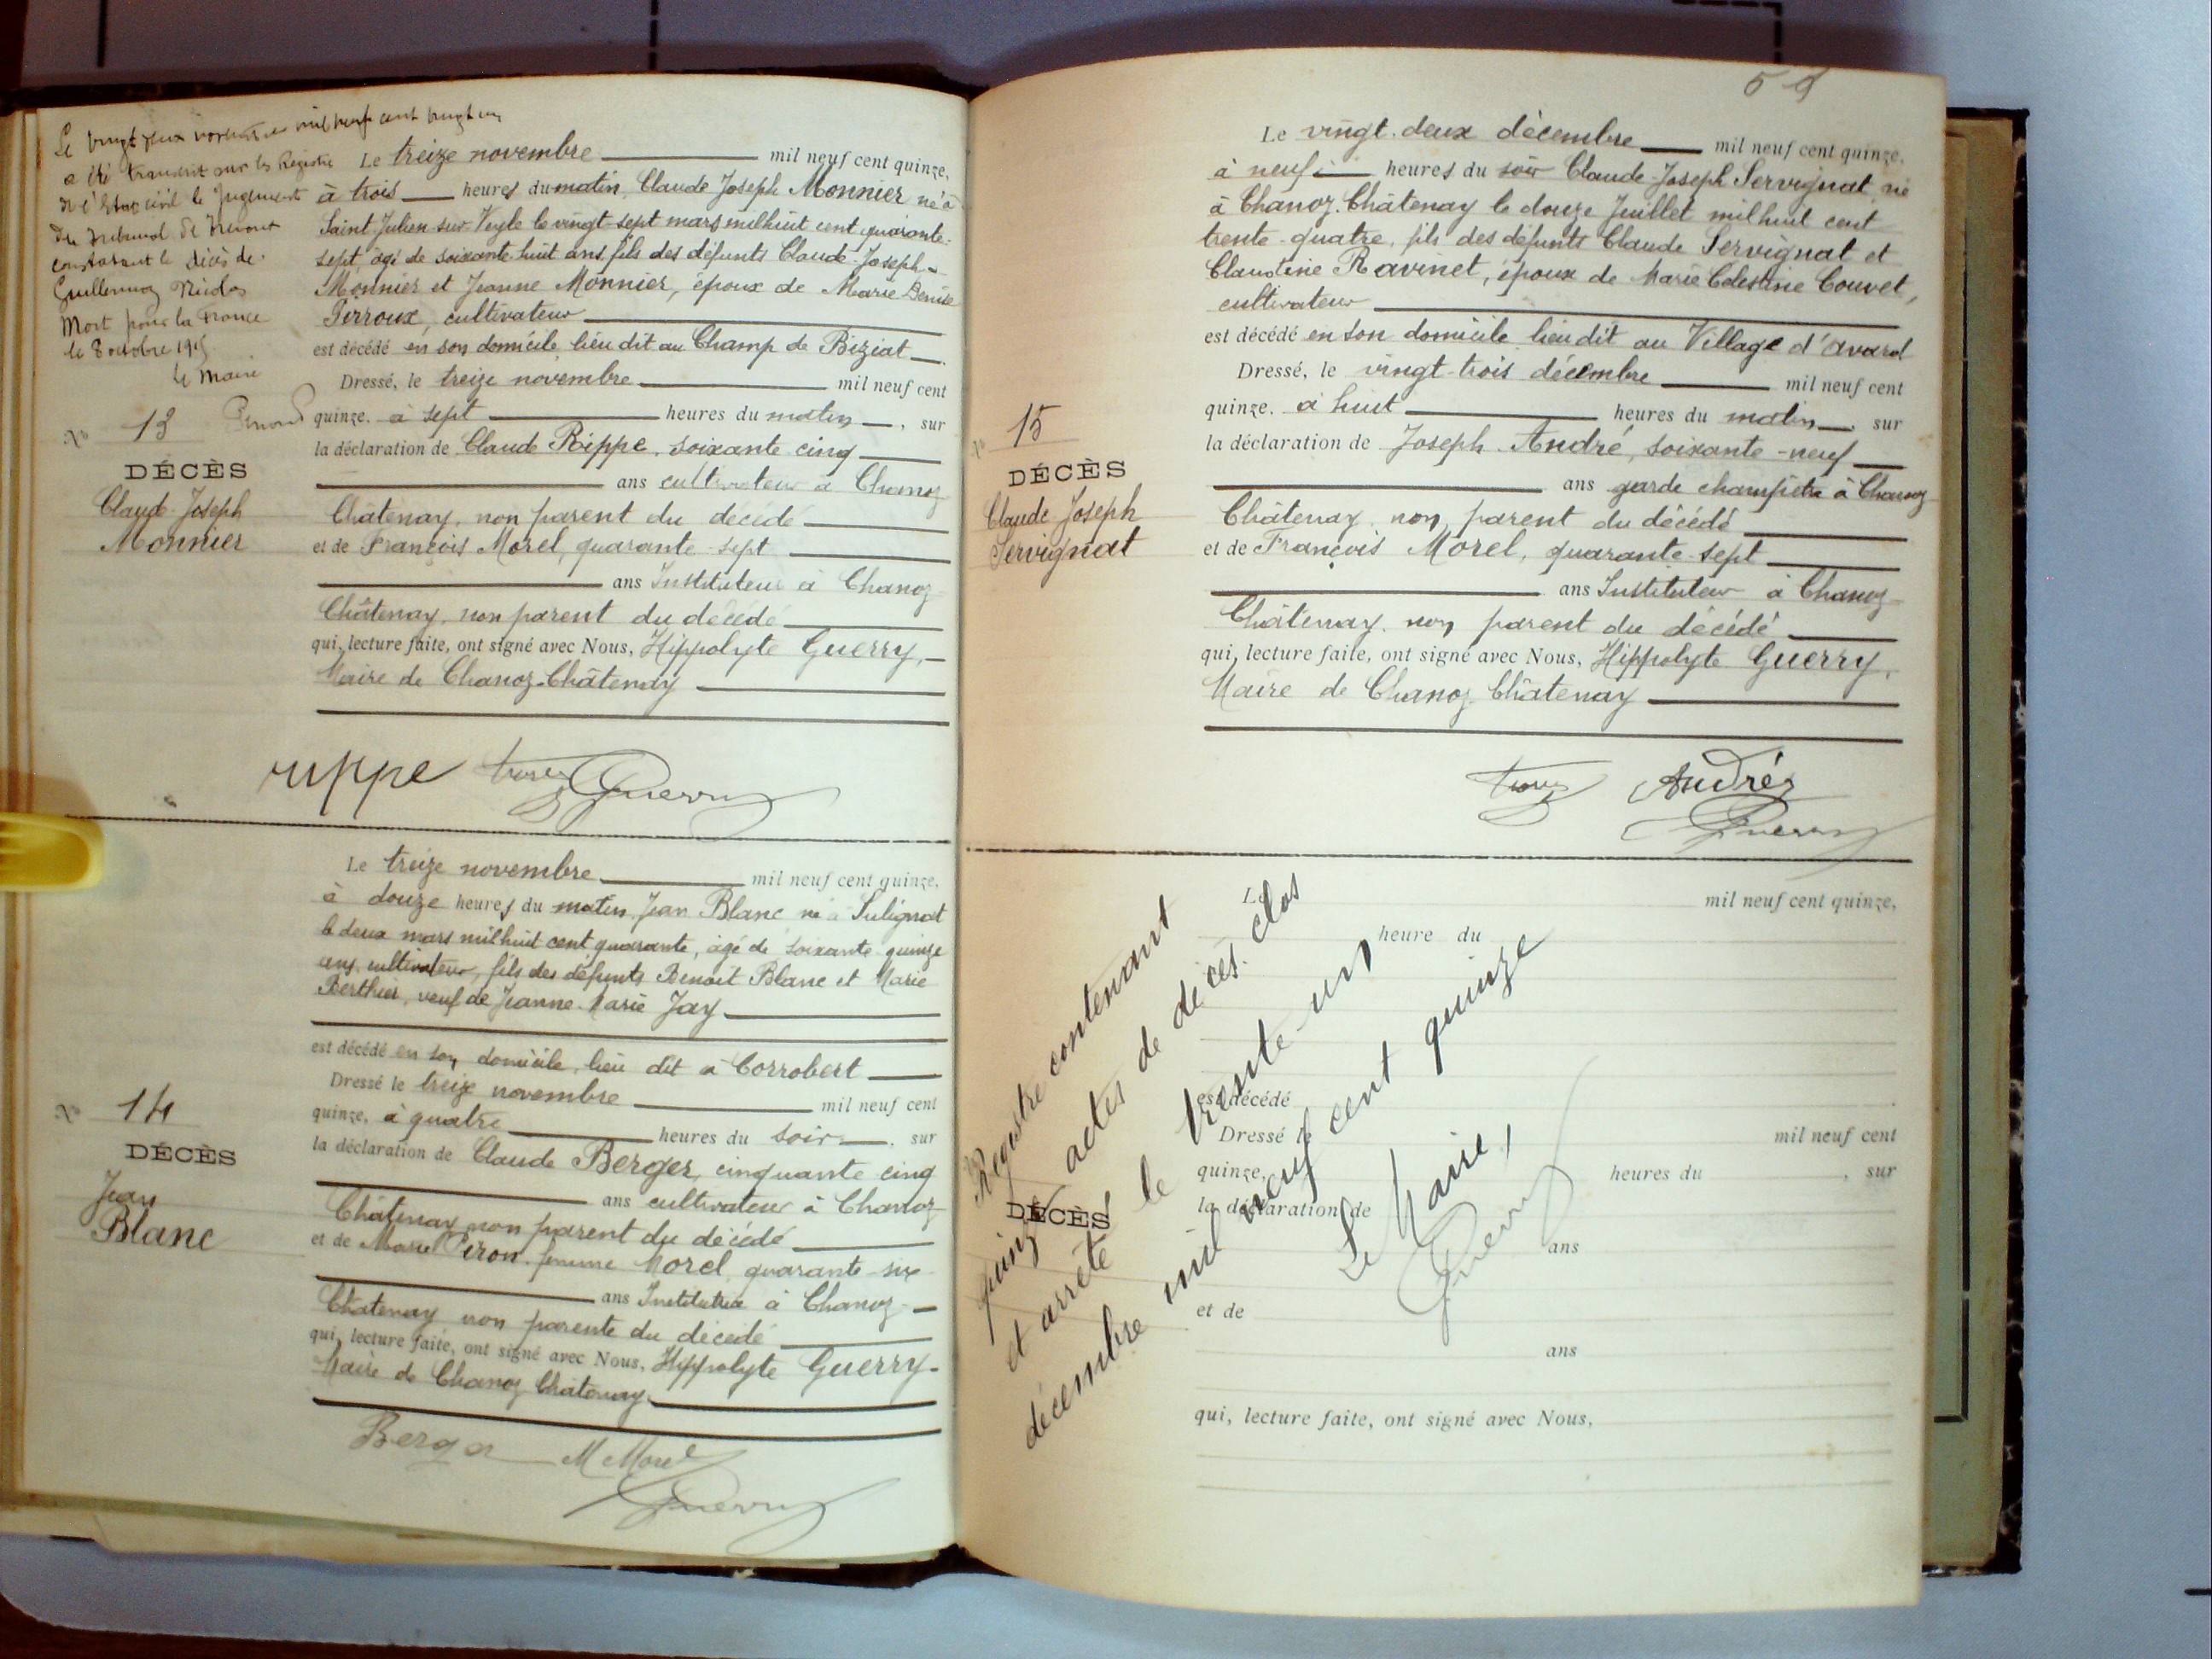 Le vingt deux novembre mil neuf cent vingt un
a été transcrit sur les Registres
de l'Etat civil le Jugement
du Tribunal de Trévoux
constatant le décès de
Guillermoz Nicolas
Mort pour la France
le 8 octobre 1915
le Maire
N° 13
DÉCÈS
Claude-Joseph
Monnier
Le treize novembre mil neuf cent quinze,
à trois heures du matin, Claude Joseph Monnier né à
Saint Julien sur Veyle le vingt-sept mars mil huit cent quarante-
sept, âgé de soixante-huit ans, fils des défunts Claude-Joseph
Monnier et Jeanne Monnier, époux de Marie Denise
Perroux, cultivateur
est décédé en son domicile, lieu dit au Champ de Biziat
Dressé, le treize novembre mil neuf cent
quinze, à sept heures du matin, sur
la déclaration de Claude Rippe, soixante cinq
ans cultivateur à Chanoz-
Châtenay, non parent du décédé
et de François Morel, quarante-sept
ans Instituteur à Chanoz-
Châtenay, non parent du décédé
qui, lecture faite, ont signé avec Nous, Hippolyte Guerry,
Maire de Chanoz-Châtenay
rippe Guerry
N° 14
DÉCÈS
Jean
Blanc
Le treize novembre mil neuf cent quinze,
à douze heures du matin, Jean Blanc né à Sulignat
le deux mars mil huit cent quarante, âgé de soixante quinze
ans, cultivateur, fils des défunts Benoit Blanc et Marie
Berthier, veuf de Jeanne-Marie Jay
est décédé en son domicile, lieu dit à Corrobert
Dressé le treize novembre mil neuf cent
quinze, à quatre heures du soir, sur
la déclaration de Claude Berger, cinquante cinq
ans cultivateur à Chanoz-
Châtenay non parent du décédé
et de Marie Peron femme Morel, quarante-six
ans Institutrice à Chanoz-
Châtenay non parente du décédé
qui, lecture faite, ont signé avec Nous, Hippolyte Guerry-
Maire de Chanoz Châtenay
Berger M Morel
Guerry
N° 15
DÉCÈS
Claude Joseph
Servignat
Le vingt-deux décembre mil neuf cent quinze,
à neuf heures du soir Claude-Joseph Servignat né
à Chanoz-Châtenay le douze Juillet mil huit cent
trente-quatre, fils des défunts Claude Servignat et
Claudine Ravinet, époux de Marie Celestine Couvet,
cultivateur
est décédé en son domicile lieu dit au Village d'avard
Dressé, le vingt-trois décembre mil neuf cent
quinze, à huit heures du matin, sur
la déclaration de Joseph André, soixante-neuf
ans garde champêtre à Chanoz
Châtenay, non parent du décédé
et de François Morel, quarante-sept
ans Instituteur à Chanoz-
Châtenay, non parent du décédé
qui, lecture faite, ont signé avec Nous, Hippolyte Guerry,
Maire de Chanoz-Châtenay
André
Guerry
Le mil neuf cent quinze,
heure du
est décédé
Dressé le mil neuf cent
quinze, heures du , sur
la déclaration de
DÉCÈS
ans
et de
ans
qui, lecture faite, ont signé avec Nous,
Registre contenant
quinze actes de décès, clos
et arrêté le trente-un
décembre mil neuf cent quinze
Le Maire,
Guerry